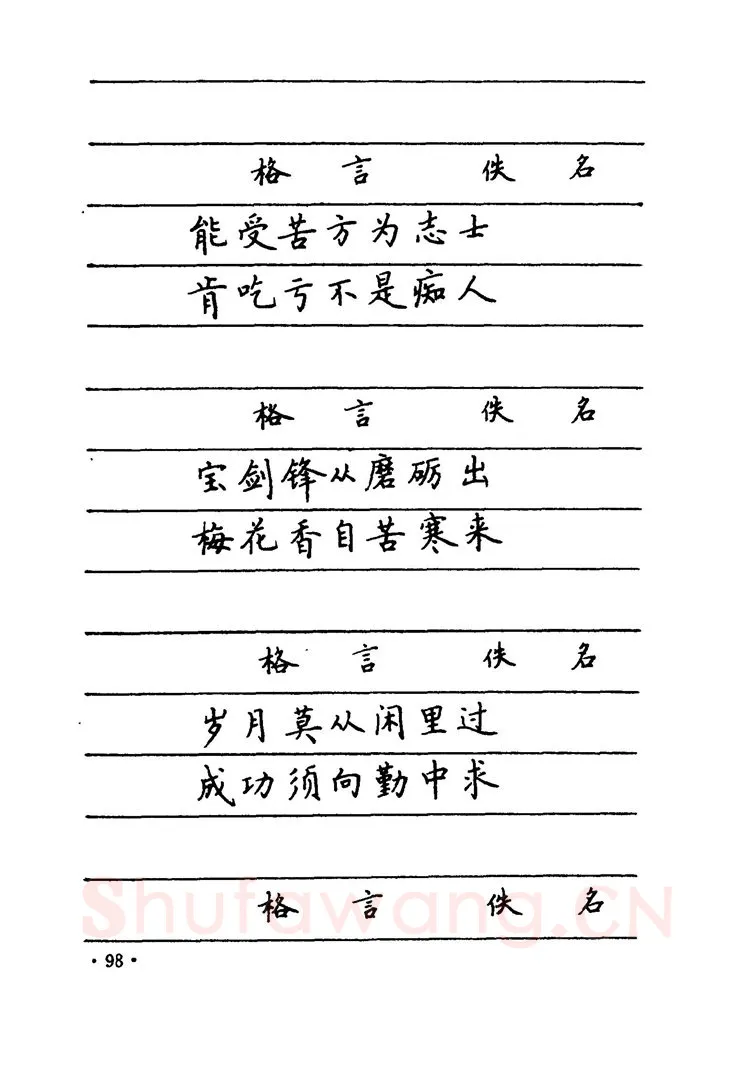 格言 佚名
能受苦方为志士
肯吃亏不是痴人
格言 佚名
宝剑锋从磨砺出
梅花香自苦寒来
格言 佚名
岁月莫从闲里过
成功须向勤中求
格言 佚名
Shufawang.CN
·98·